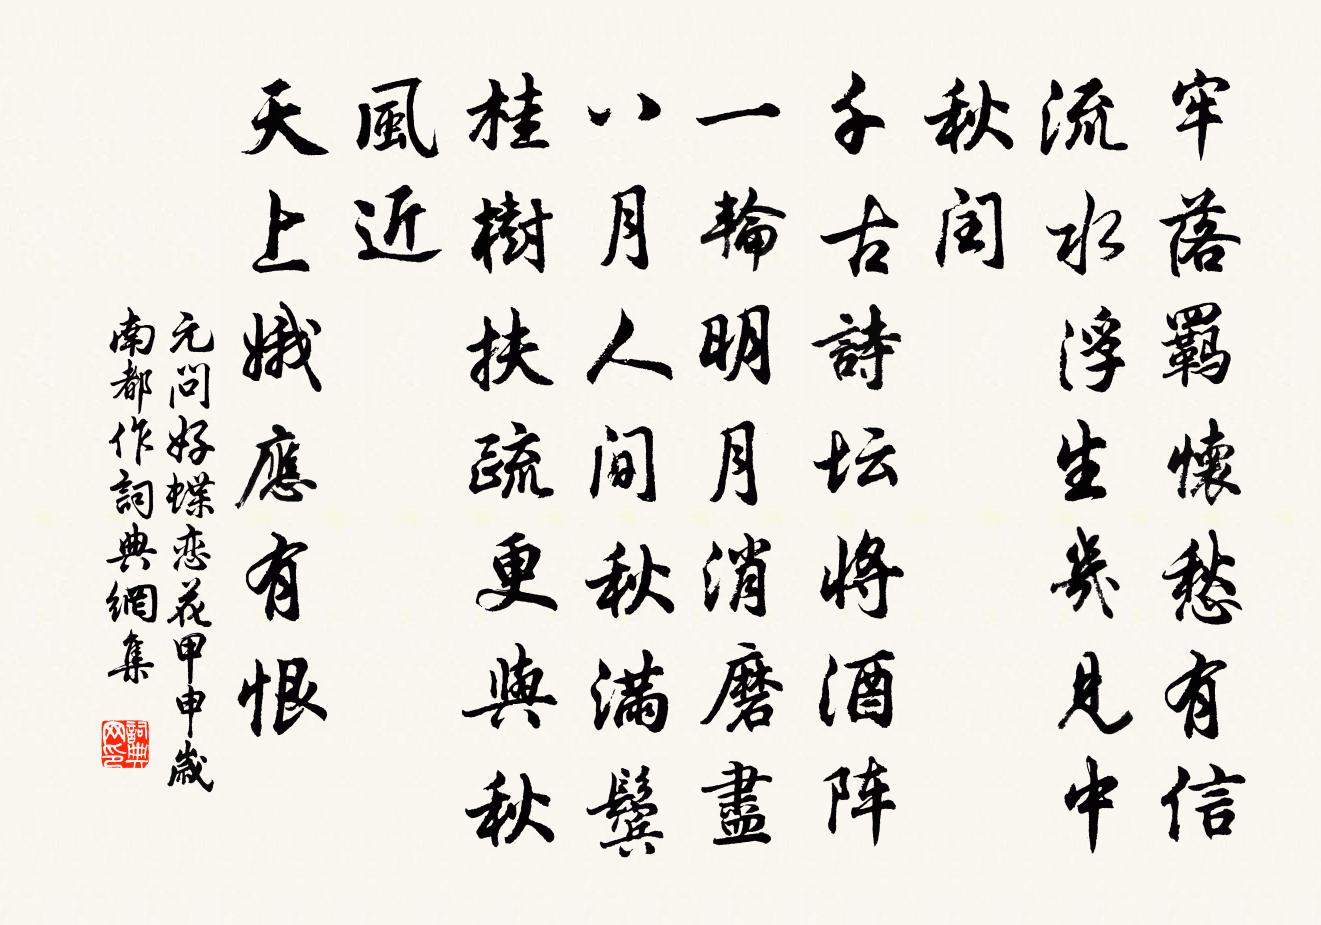 牢落羁懷愁有信
流水浮生幾見中
秋闰
千古詩坛將酒阵
一輪明月消磨盡
八月人间秋滿鬓
桂樹扶疏更與秋
風近
天上娥應有恨
元问好蝶恋花甲申歲
南都作詞典網集
詞典网印